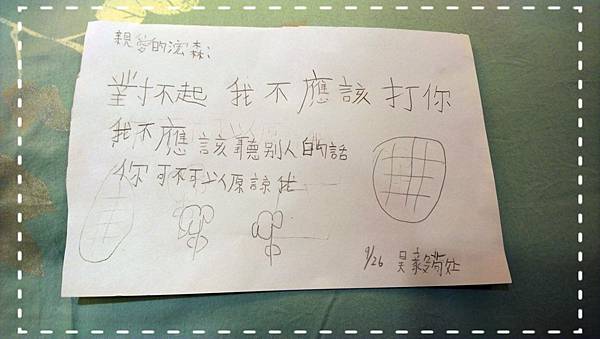 親愛的浤森:
對不起 我不應該打你
我不應該聽別人的話
你可不可以原諒我
9/26 吳